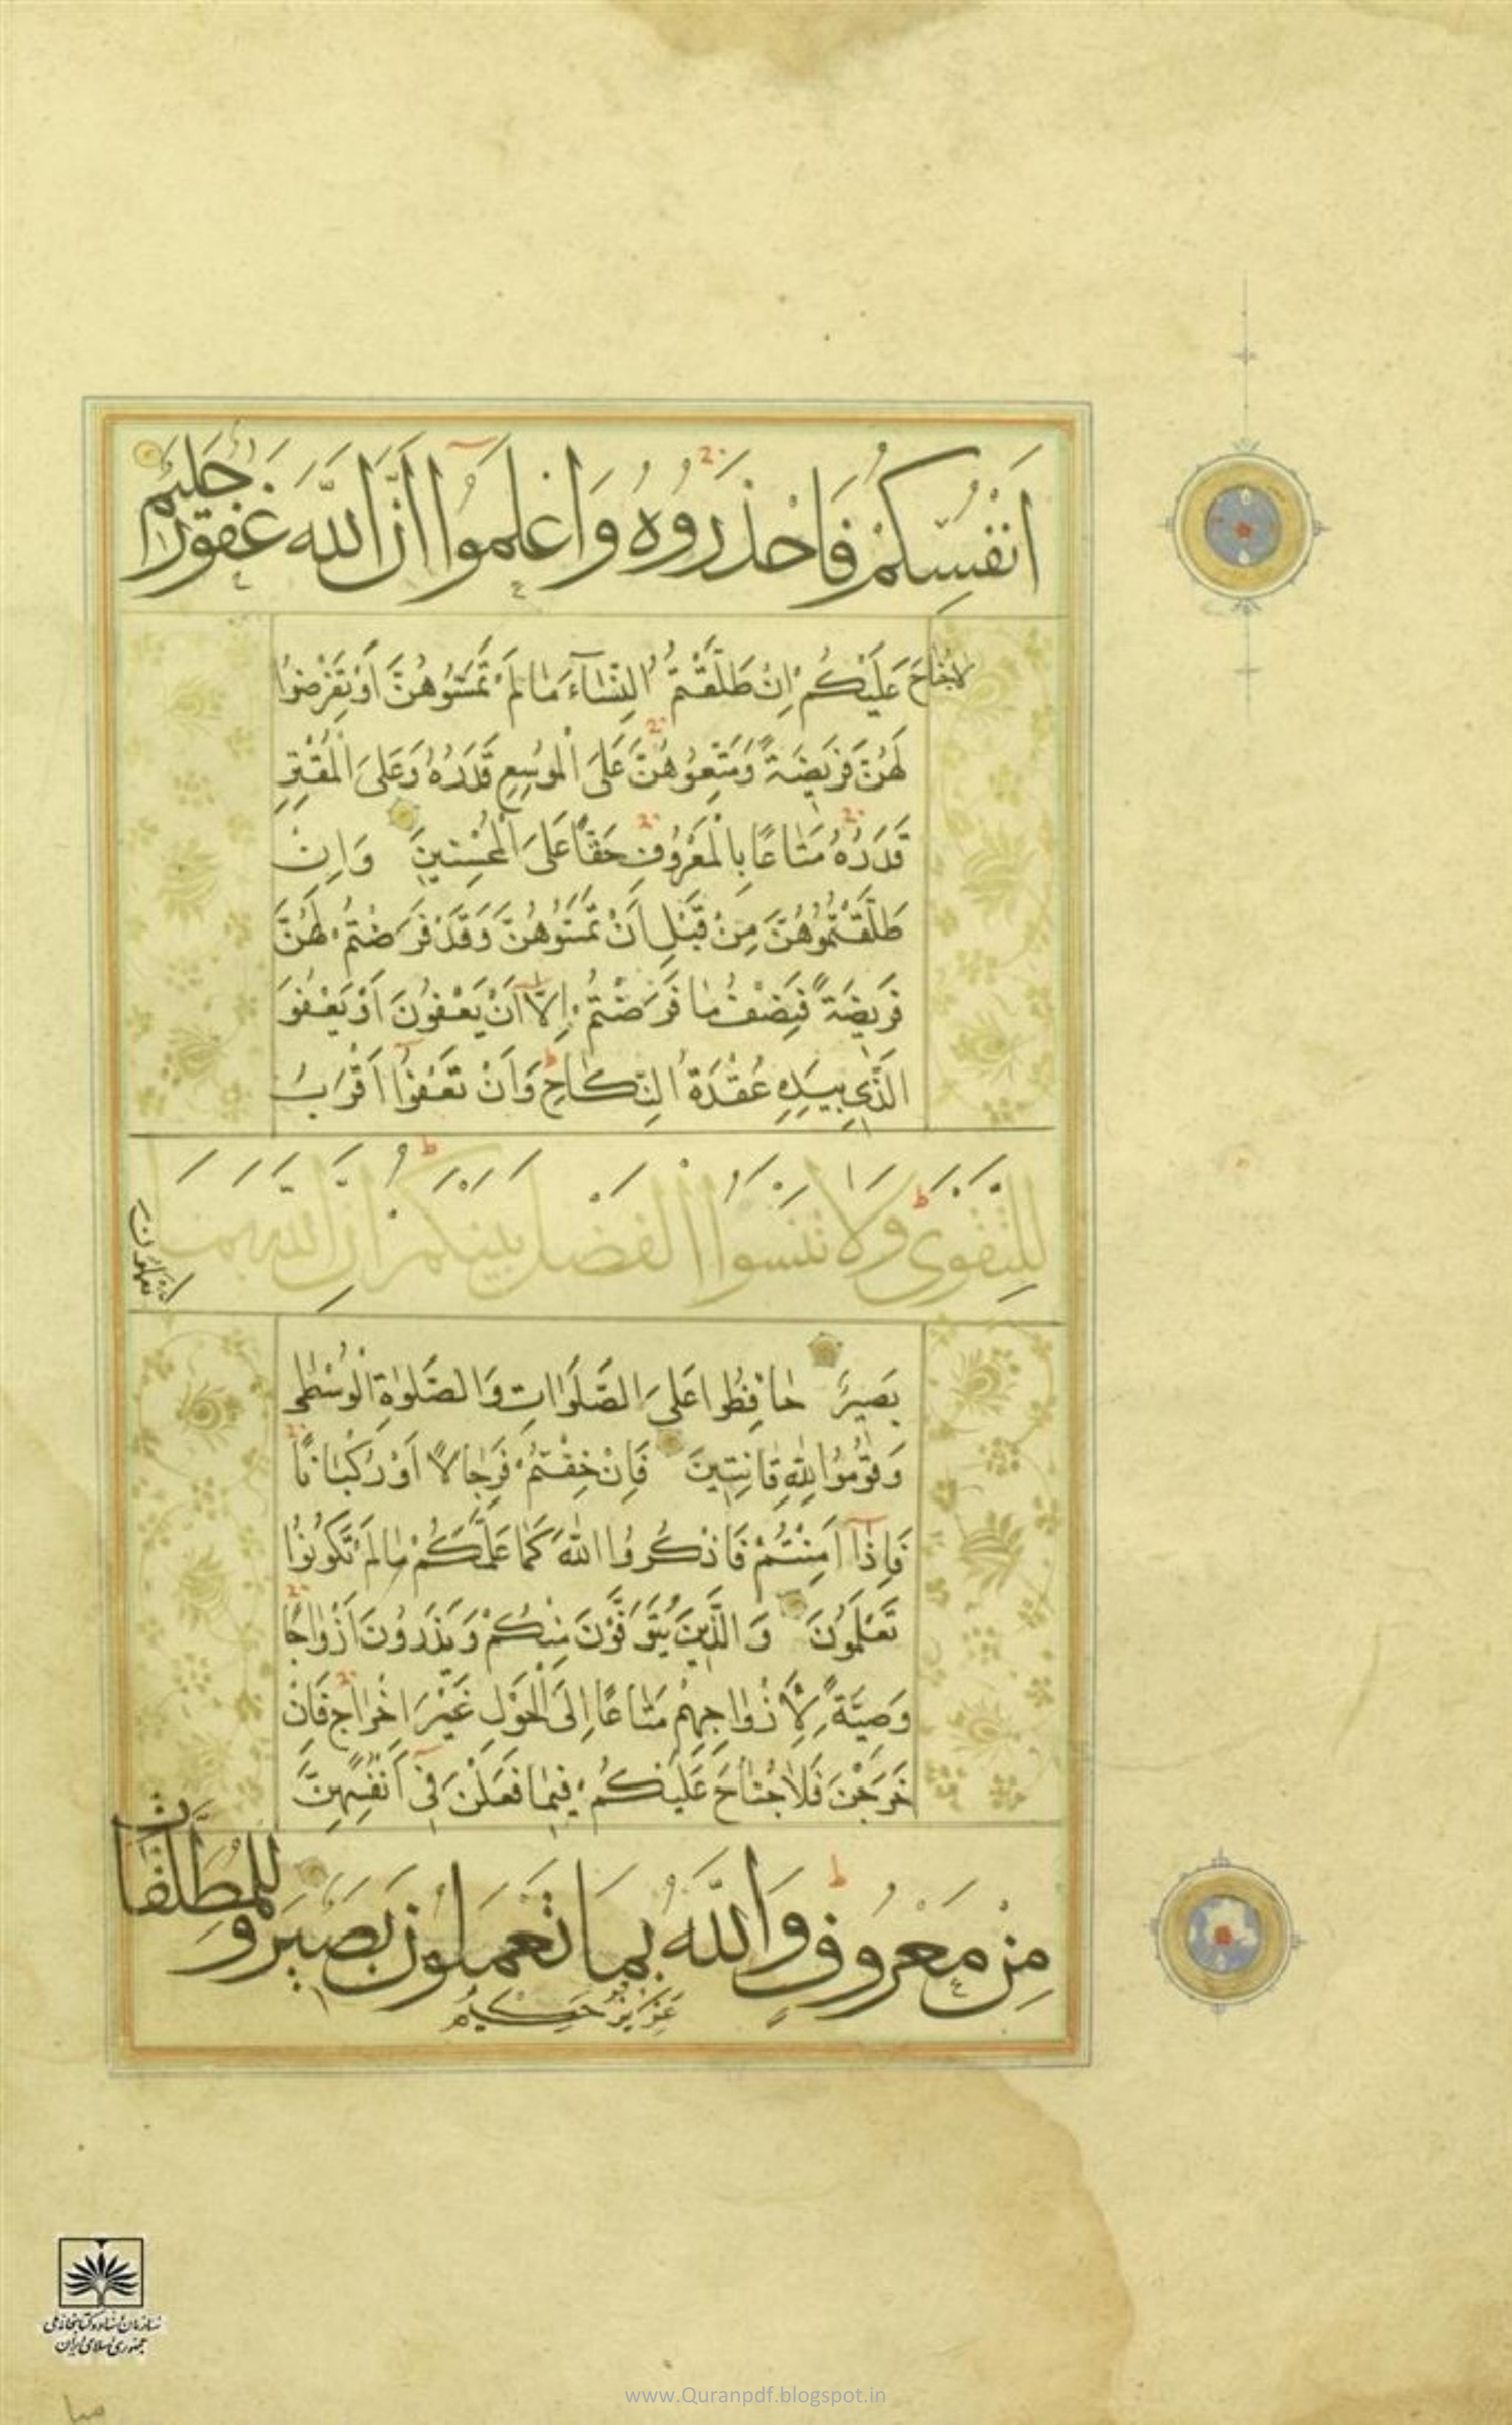 اَنْفُسِكُمْ فَاحْذَرُوهُ وَاعْلَمُوٓا اَنَّ اللّٰهَ غَفُورٌ حَلِيمٌ
لَاجُنَاحَ عَلَيْكُمْ اِنْ طَلَّقْتُمُ النِّسَآءَ مَالَمْ تَمَسُّوهُنَّ اَوْ تَفْرِضُوا
لَهُنَّ فَرِيضَةً وَمَتِّعُوهُنَّ عَلَى الْمُوسِعِ قَدَرُهُ وَعَلَى الْمُقْتِرِ
قَدَرُهُ مَتَاعًا بِالْمَعْرُوفِ حَقًّا عَلَى الْمُحْسِنِينَ وَاِنْ
طَلَّقْتُمُوهُنَّ مِنْ قَبْلِ اَنْ تَمَسُّوهُنَّ وَقَدْ فَرَضْتُمْ لَهُنَّ
فَرِيضَةً فَنِصْفُ مَا فَرَضْتُمْ اِلَّآ اَنْ يَعْفُونَ اَوْ يَعْفُوَ
الَّذِي بِيَدِهِ عُقْدَةُ النِّكَاحِ وَاَنْ تَعْفُوٓا اَقْرَبُ
لِلتَّقْوٰى وَلَا تَنْسَوُا الْفَضْلَ بَيْنَكُمْ اِنَّ اللّٰهَ بِمَا تَعْمَلُونَ
بَصِيرٌ حَافِظُوا عَلَى الصَّلَوَاتِ وَالصَّلٰوةِ الْوُسْطٰى
وَقُومُوا لِلّٰهِ قَانِتِينَ فَاِنْ خِفْتُمْ فَرِجَالًا اَوْ رُكْبَانًا
فَاِذَآ اَمِنْتُمْ فَاذْكُرُوا اللّٰهَ كَمَا عَلَّمَكُمْ مَالَمْ تَكُونُوا
تَعْلَمُونَ وَالَّذِينَ يُتَوَفَّوْنَ مِنْكُمْ وَيَذَرُونَ اَزْوَاجًا
وَصِيَّةً لِاَزْوَاجِهِمْ مَتَاعًا اِلَى الْحَوْلِ غَيْرَ اِخْرَاجٍ فَاِنْ
خَرَجْنَ فَلَا جُنَاحَ عَلَيْكُمْ فِيمَا فَعَلْنَ فِىٓ اَنْفُسِهِنَّ
مِنْ مَعْرُوفٍ وَاللّٰهُ بِمَا تَعْمَلُونَ بَصِير وَلِلْمُطَلَّقَاتِ
عَزِيزٌ حَكِيمٌ
سازمان اسناد و کتابخانه ملی
جمهوری اسلامی ایران
www.Quranpdf.blogspot.in